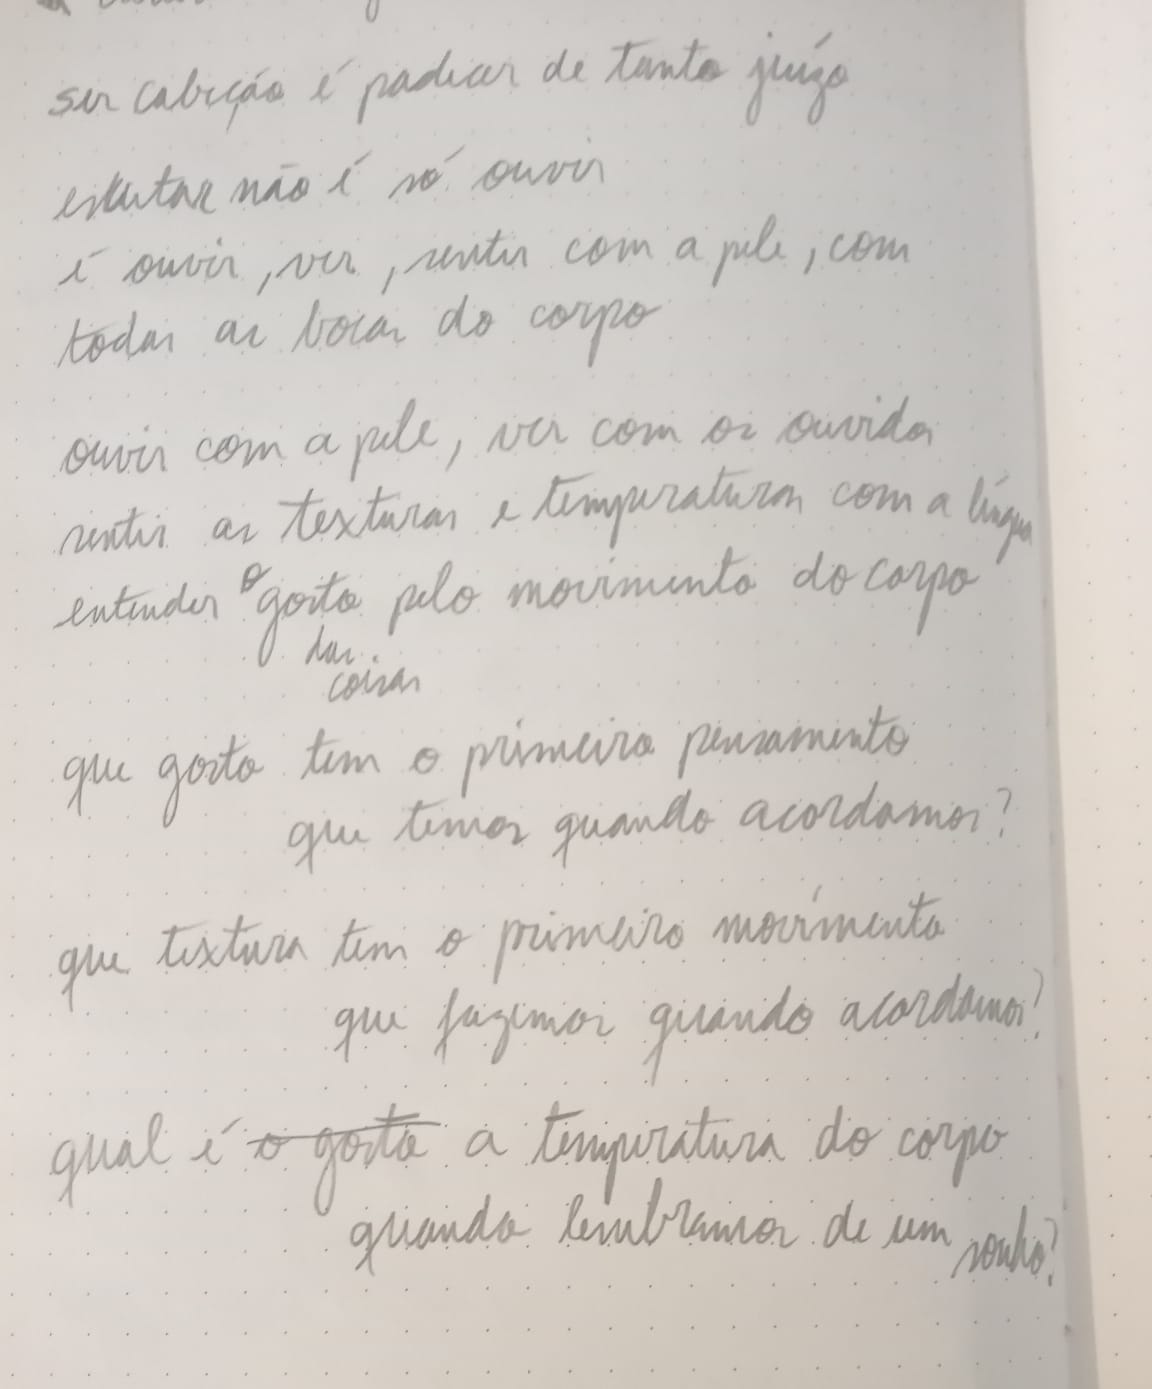 ser cabeção é padecer de tanto juízo
escutar não é só ouvir
é ouvir, ver, sentir com a pele, com
todas as bocas do corpo
ouvir com a pele, ver com os ouvidos
sentir as texturas e temperaturas com a língua
entender o gosto pelo movimento do corpo
das
coisas
que gosto tem o primeiro pensamento
que temos quando acordamos?
que textura tem o primeiro movimento
que fazemos quando acordamos?
qual é o gosto a temperatura do corpo
quando lembramos de um sonho?